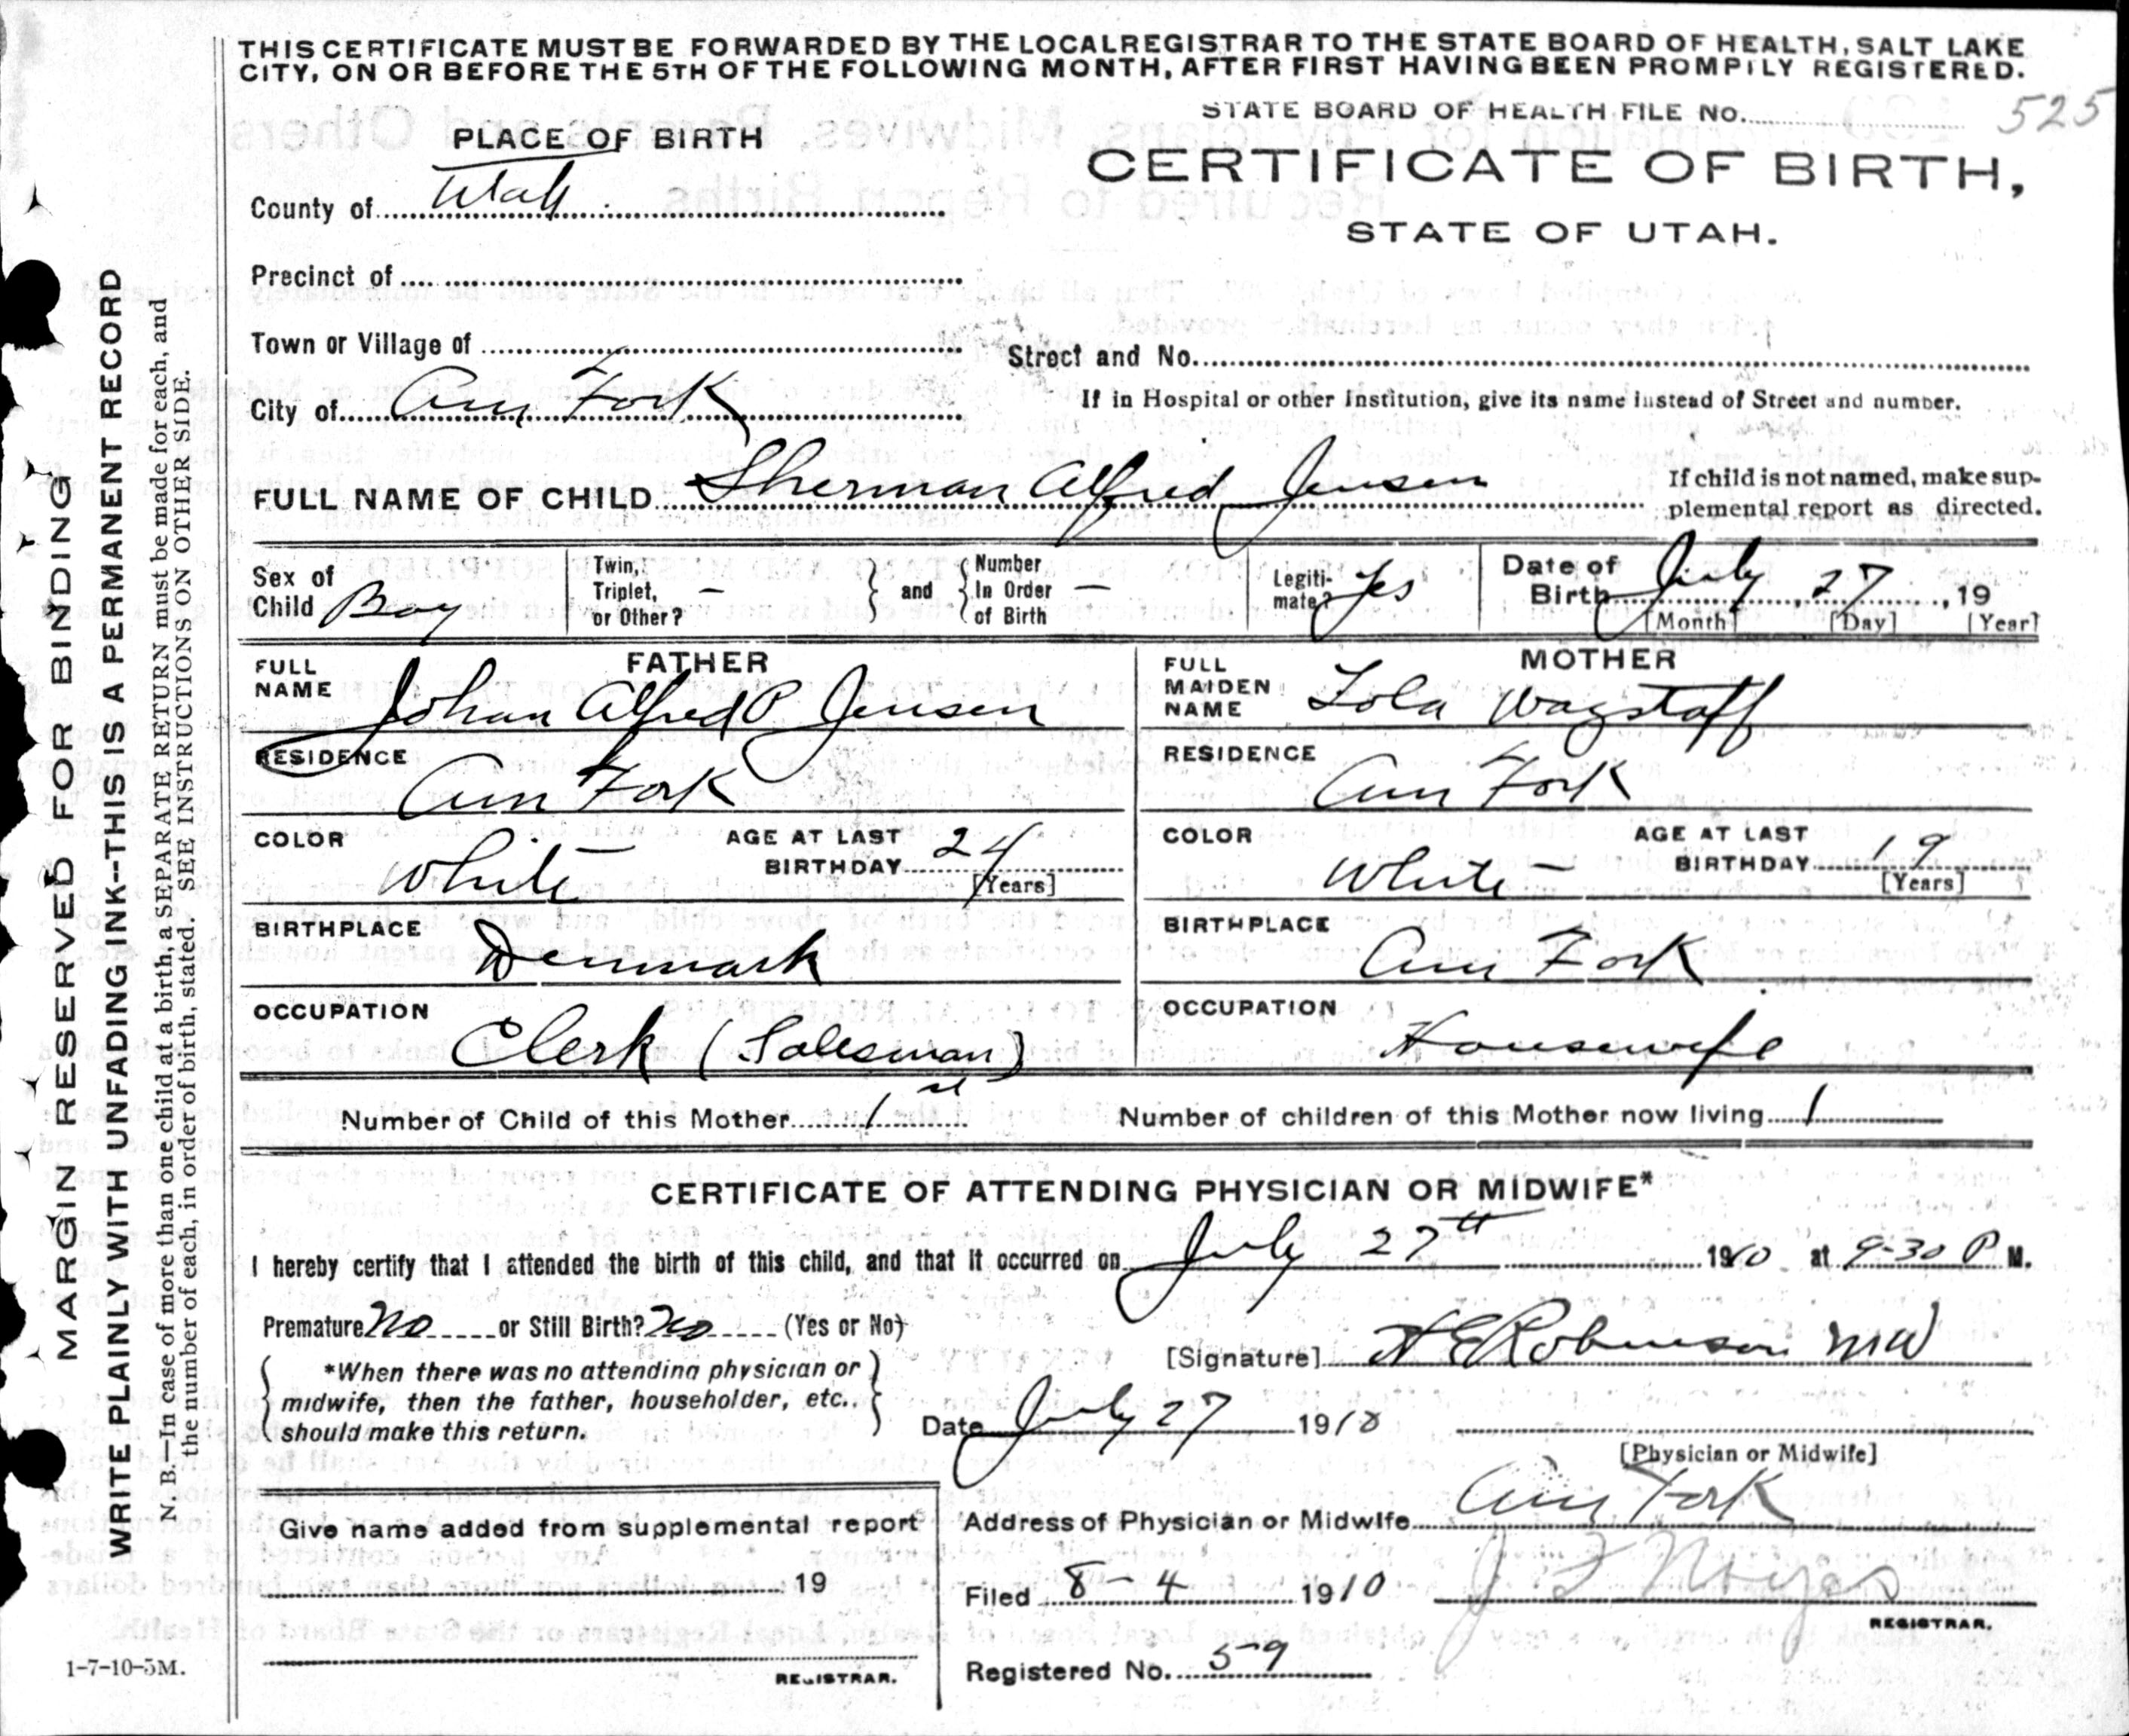 THIS CERTIFICATE MUST BE FORWARDED BY THE LOCAL REGISTRAR TO THE STATE BOARD OF HEALTH, SALT LAKE
CITY, ON OR BEFORE THE 5TH OF THE FOLLOWING MONTH, AFTER FIRST HAVING BEEN PROMPTLY REGISTERED.
STATE BOARD OF HEALTH FILE No. 525
PLACE OF BIRTH
CERTIFICATE OF BIRTH,
STATE OF UTAH.
County of Utah
Precinct of
Town or Village of
Street and No.
City of Am Fork
If in Hospital or other Institution, give its name instead of Street and number.
FULL NAME OF CHILD Sherman Alfred Jensen
If child is not named, make sup-
plemental report as directed.
Sex of Child Boy
Twin, Triplet, or Other? –
and
Number In Order of Birth –
Legiti-mate? Yes
Date of Birth July, 27, 19
[Month] [Day] [Year]
FATHER
FULL NAME Johan Alfred P Jensen
RESIDENCE
Am Fork
COLOR White
AGE AT LAST BIRTHDAY 24
[Years]
BIRTHPLACE
Denmark
OCCUPATION
Clerk (Salesman)
MOTHER
FULL MAIDEN NAME Lola Wagstaff
RESIDENCE
Am Fork
COLOR White
AGE AT LAST BIRTHDAY 19
[Years]
BIRTHPLACE
Am Fork
OCCUPATION
Housewife
Number of Child of this Mother 1st
Number of children of this Mother now living 1
CERTIFICATE OF ATTENDING PHYSICIAN OR MIDWIFE*
I hereby certify that I attended the birth of this child, and that it occurred on July 27th 1910 at 9-30 P M.
Premature No or Still Birth? No (Yes or No)
*When there was no attending physician or
midwife, then the father, householder, etc.,
should make this return.
[Signature] Robinson MW
Date July 27 1910
[Physician or Midwife]
Address of Physician or Midwife Am Fork
Give name added from supplemental report
19
REGISTRAR.
Filed 8-4 1910
REGISTRAR.
Registered No. 59
MARGIN RESERVED FOR BINDING
WRITE PLAINLY WITH UNFADING INK--THIS IS A PERMANENT RECORD
N. B.—In case of more than one child at a birth, a SEPARATE RETURN must be made for each, and
the number of each, in order of birth, stated. SEE INSTRUCTIONS ON OTHER SIDE.
1-7-10-5M.